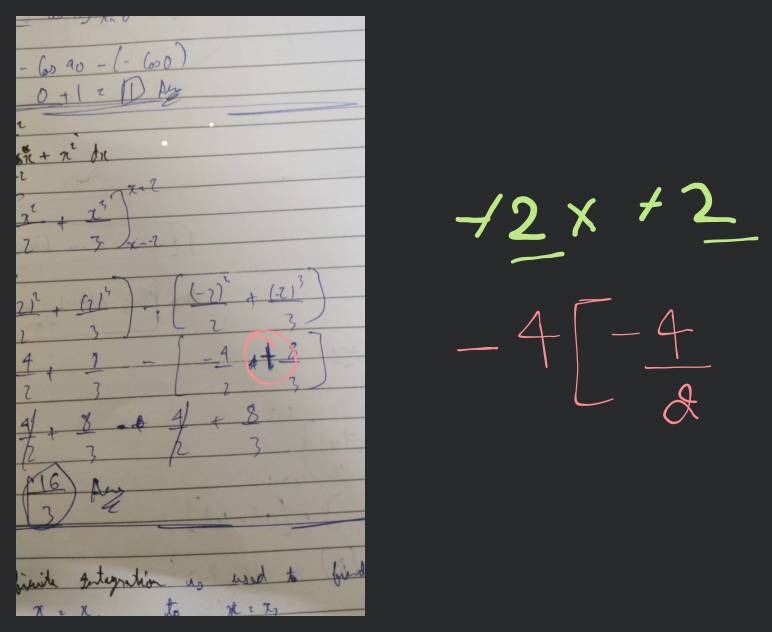 - Cos 90 - (- Cos 0)
0 + 1 = 1 Ans
x + x² dx
-2
x²/2 + x³/3 ] x=2 x=-2
2)²/2 + (2)³/3 ] - [ (-2)²/2 + (-2)³/3 ]
4/2 + 8/3 - [ -4/2 + 8/3 ]
4/2 + 8/3 - 4/2 + 8/3
16/3 Ans
finite Integration is used to find
x = x, to x = x₂
+2 x +2
- 4 [ - 4/2